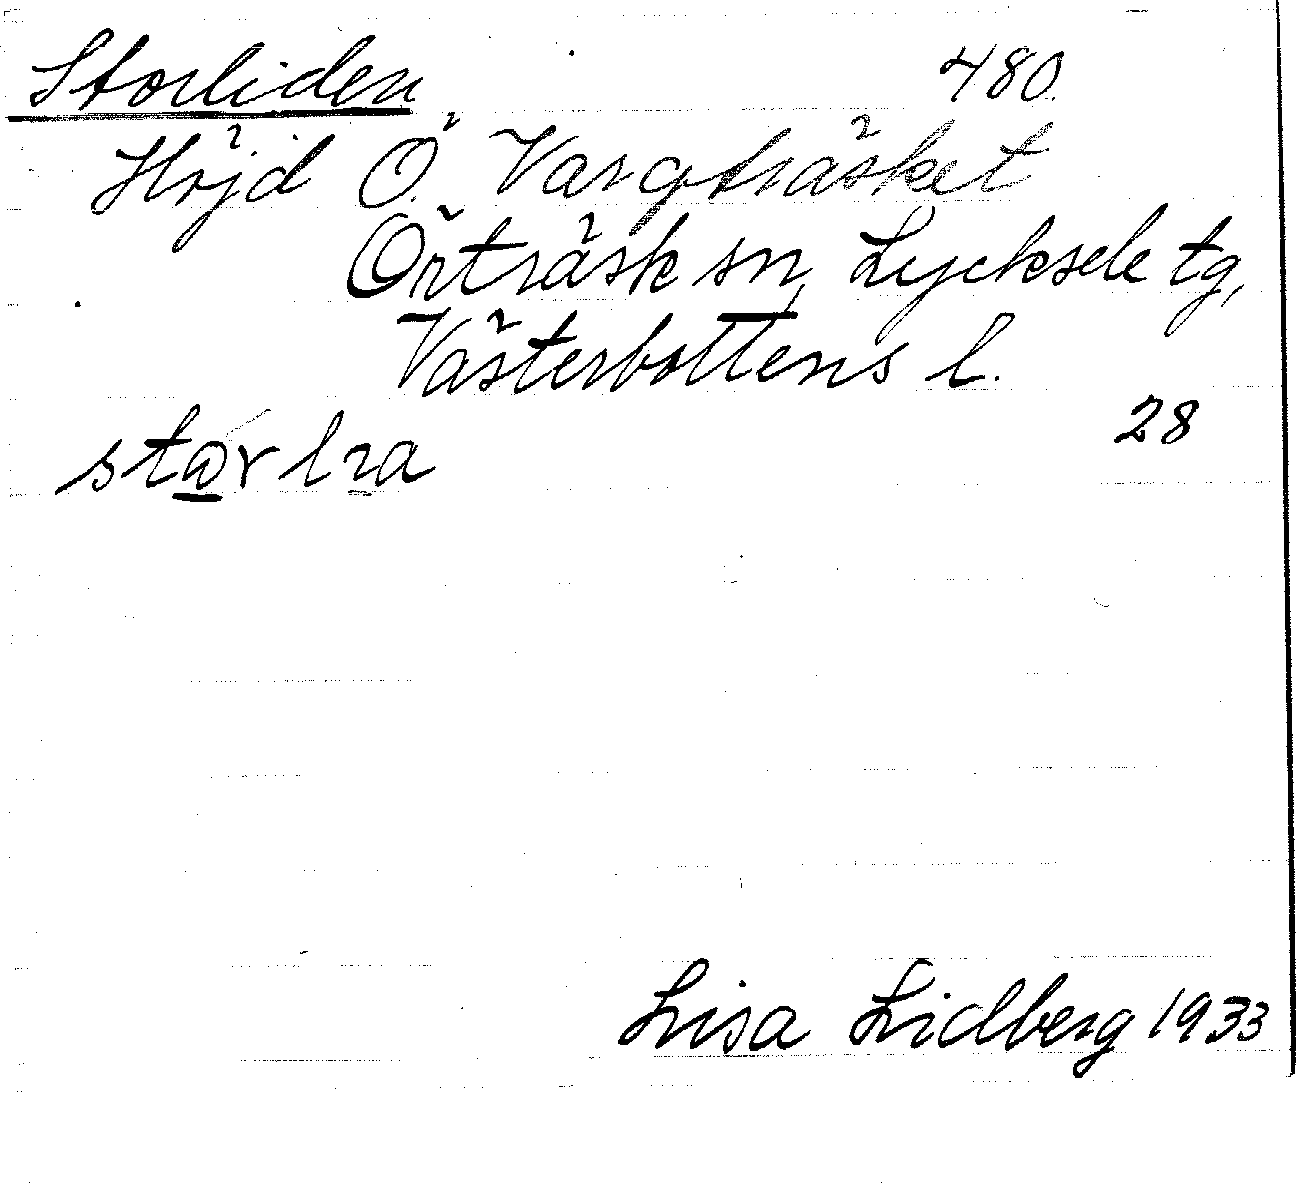 Storliden 480.
Höjd Ö. Vargträsket
Örträsk sn, Lycksele tg,
Västerbottens l.
28
Lisa Lidberg 1933